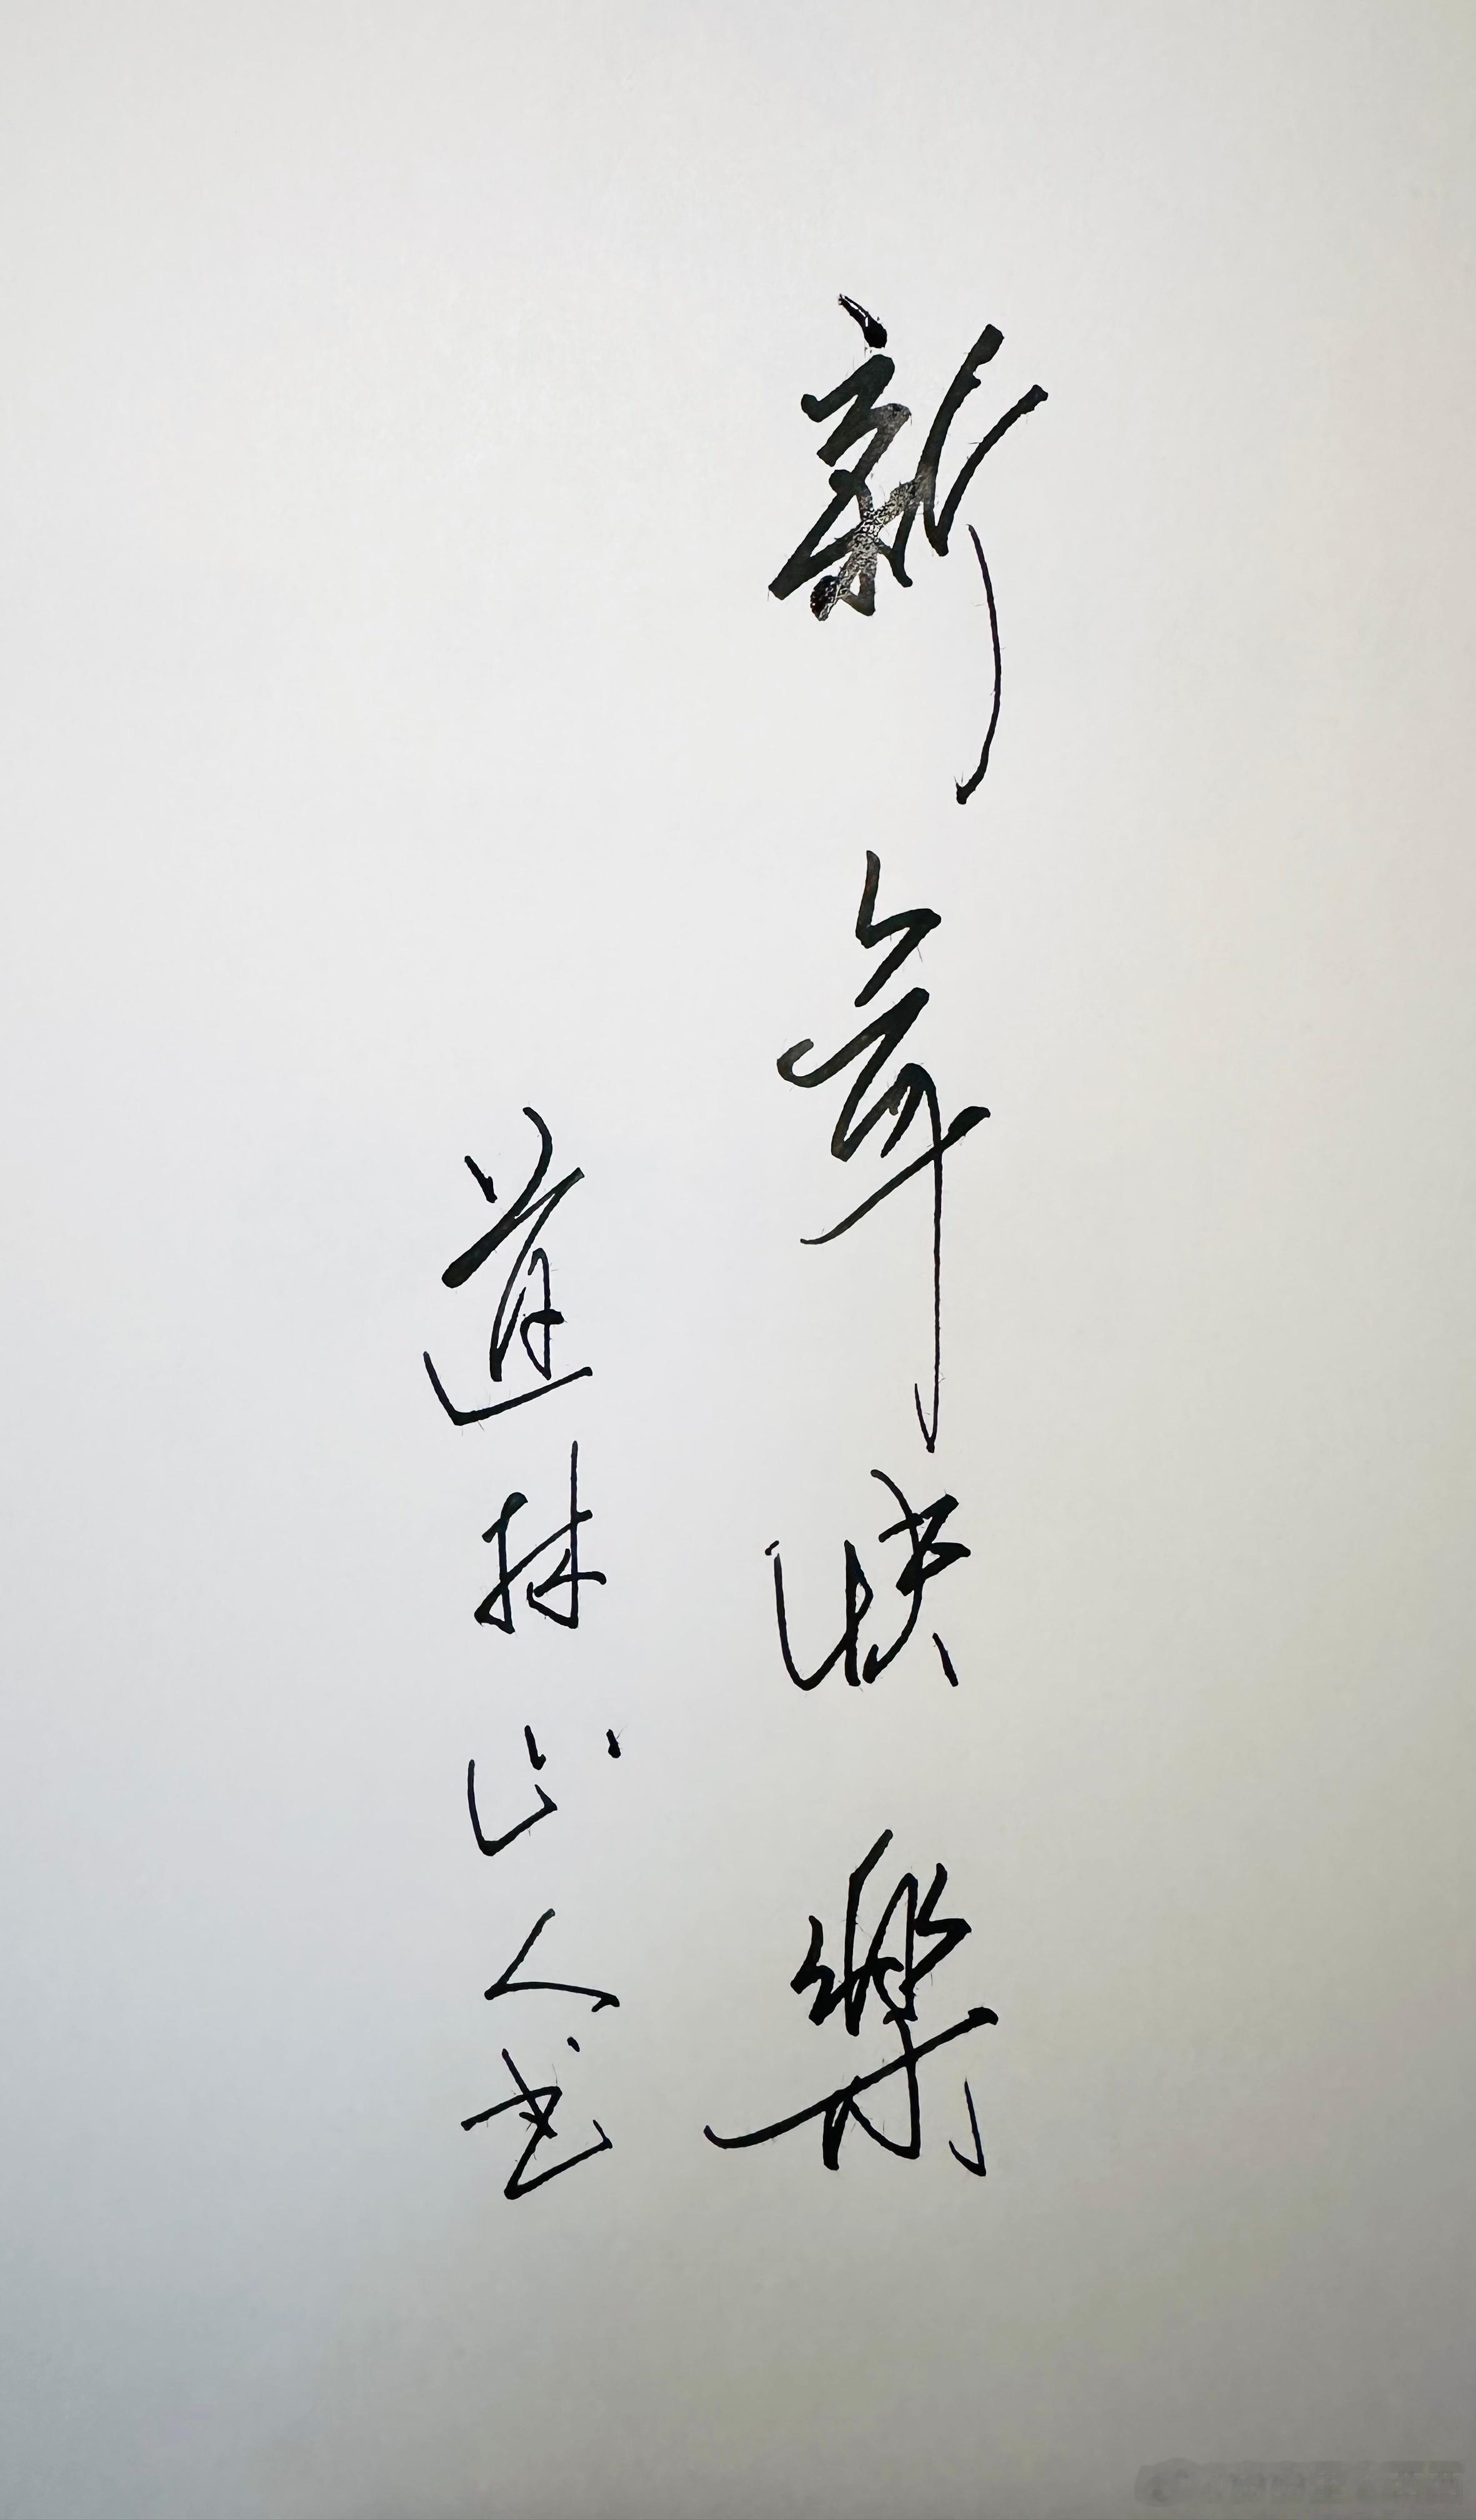 新年快樂
道林山人书